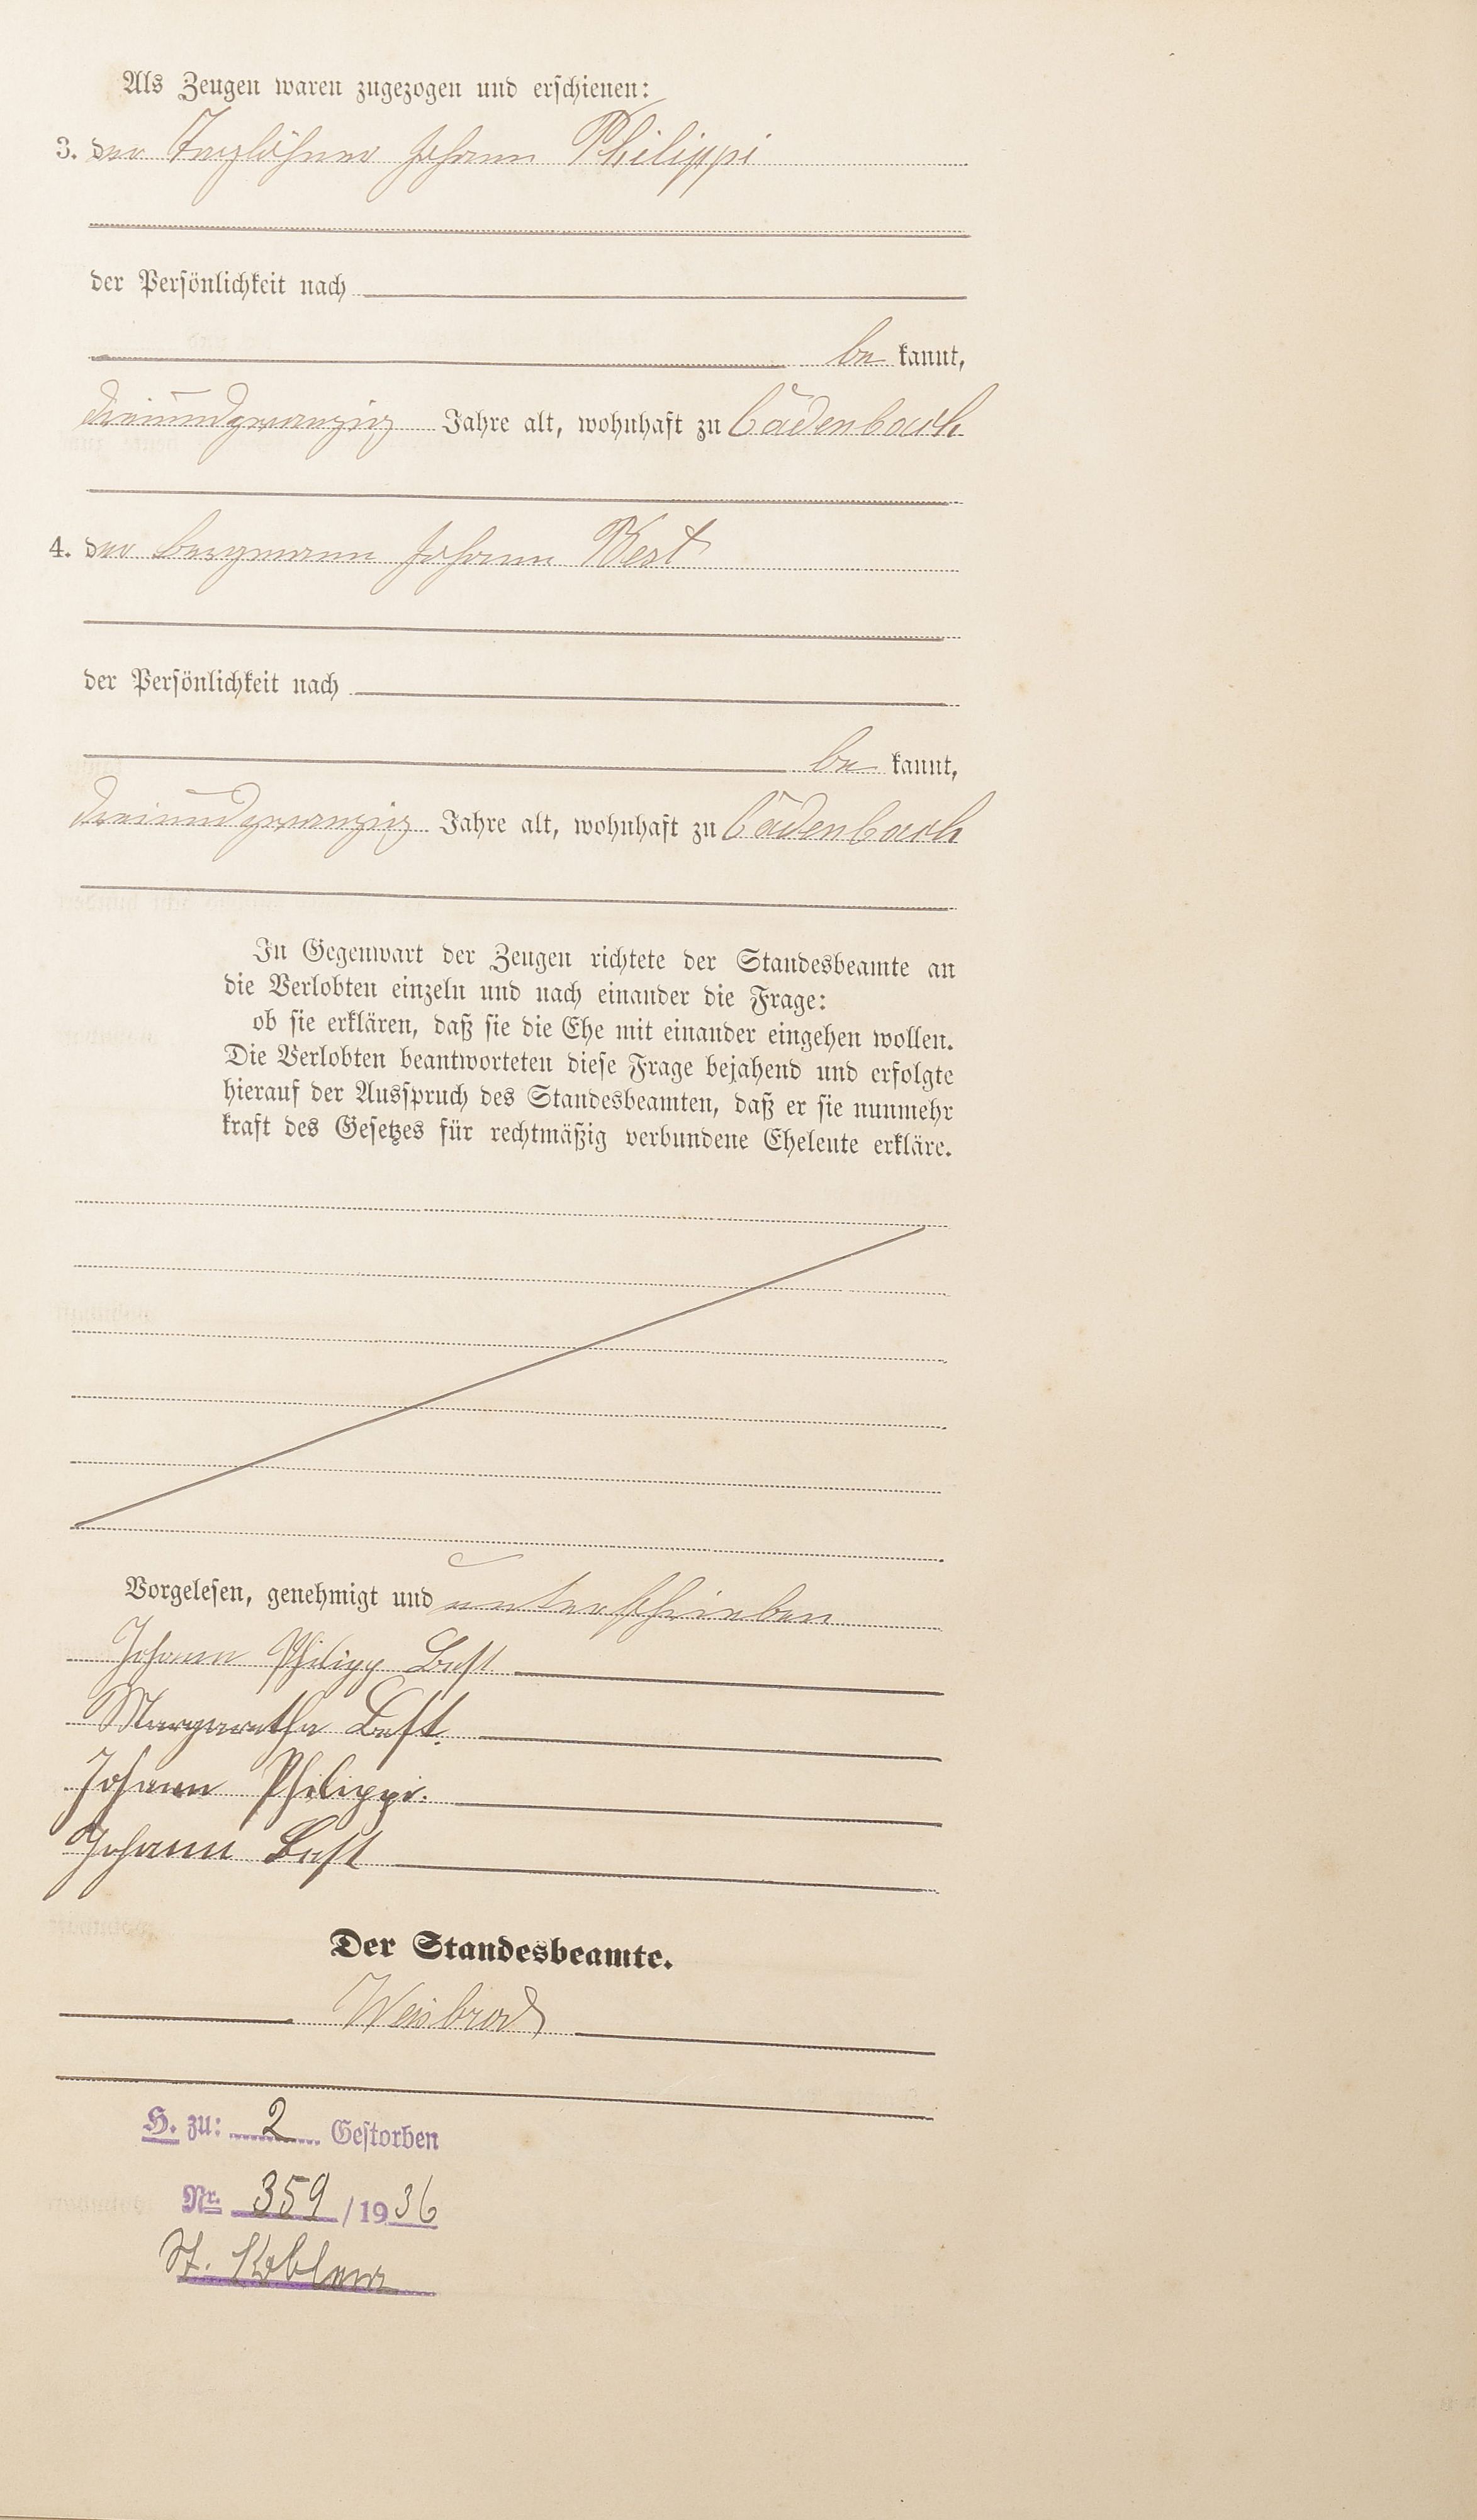 Als Zeugen waren zugezogen und erschienen:
3. der Taglöhner Johann Philippi
der Persönlichkeit nach
be kannt,
dreiundzwanzig Jahre alt, wohnhaft zu Cadenbach
4. der Bergmann Johann Best
der Persönlichkeit nach
be kannt,
dreiundzwanzig Jahre alt, wohnhaft zu Cadenbach
In Gegenwart der Zeugen richtete der Standesbeamte an
die Verlobten einzeln und nach einander die Frage:
ob sie erklären, daß sie die Ehe mit einander eingehen wollen.
Die Verlobten beantworteten diese Frage bejahend und erfolgte
hierauf der Ausspruch des Standesbeamten, daß er sie nunmehr
kraft des Gesetzes für rechtmäßig verbundene Eheleute erkläre.
Vorgelesen, genehmigt und unterschrieben
Johann Philipp Best
Margaretha Best.
Johann Philippi.
Johann Best
Der Standesbeamte.
Weisbrod
H. zu: 2 Gestorben
Nr. 359 / 1936
St. Koblenz